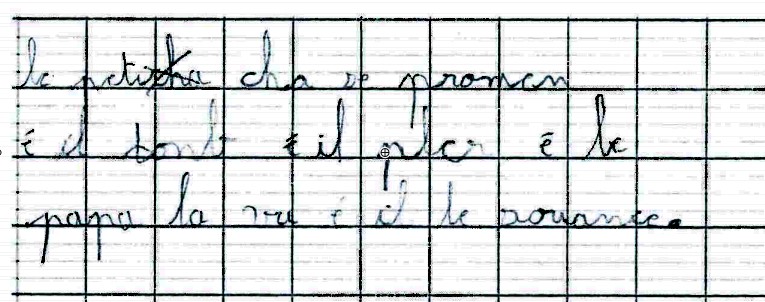 le petit cha se promen
é il tonb é il pler é le
papa la vu é il le sournee.